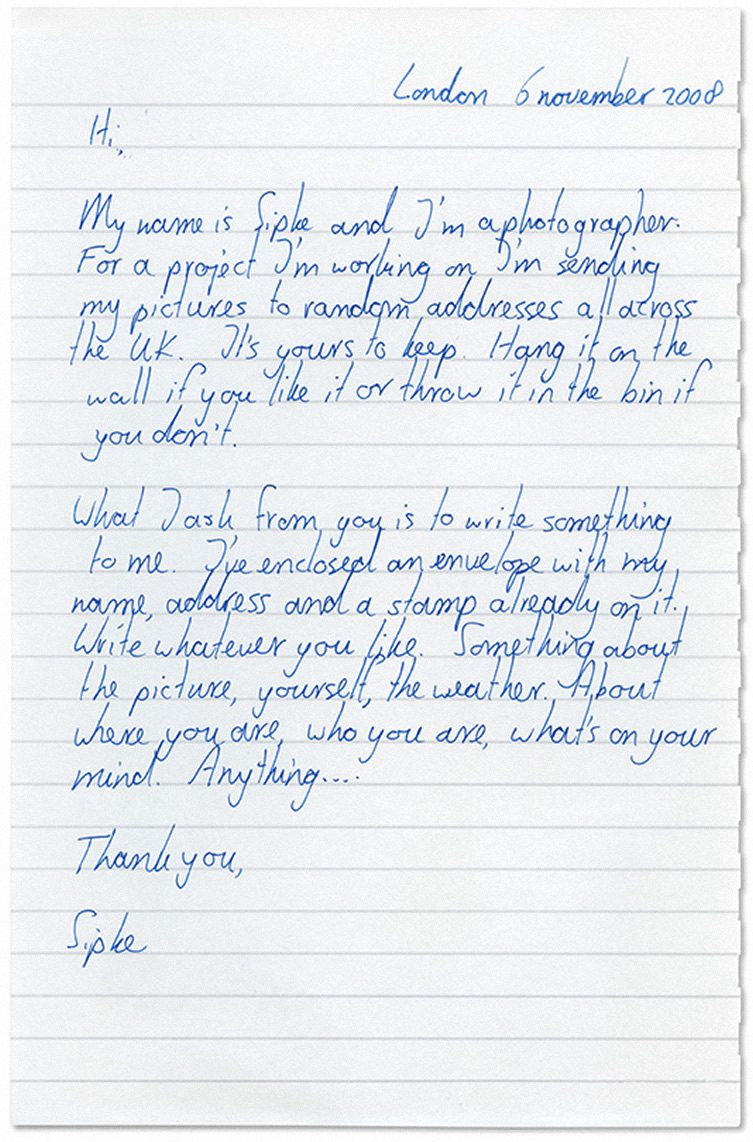 London 6 november 2008
Hi,
My name is Sipke and I'm a photographer.
For a project I'm working on I'm sending
my pictures to random addresses all across
the UK. It's yours to keep. Hang it on the
wall if you like it or throw it in the bin if
you don't.
What I ask from you is to write something
to me. I've enclosed an envelope with my
name, address and a stamp already on it.
Write whatever you like. Something about
the picture, yourself, the weather. About
where you are, who you are, what's on your
mind. Anything....
Thank you,
Sipke